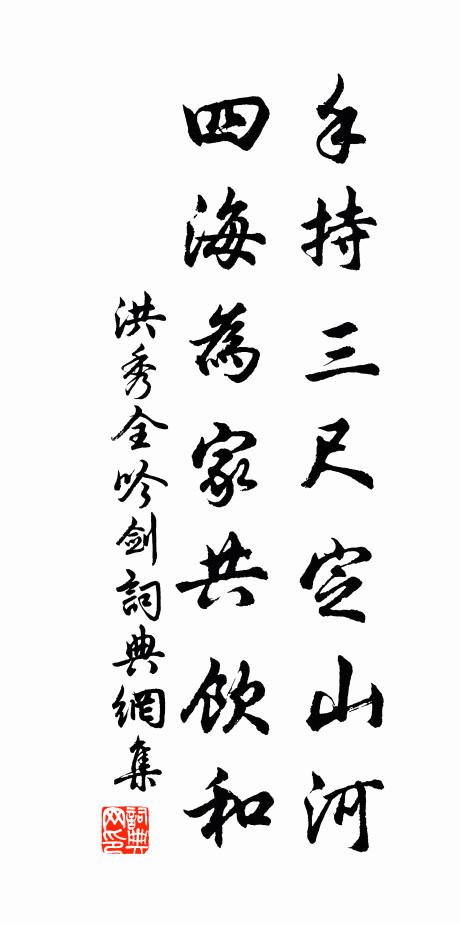 手持三尺定山河
四海為家共飲和
洪秀全吟劍詞典網集
詞典网印